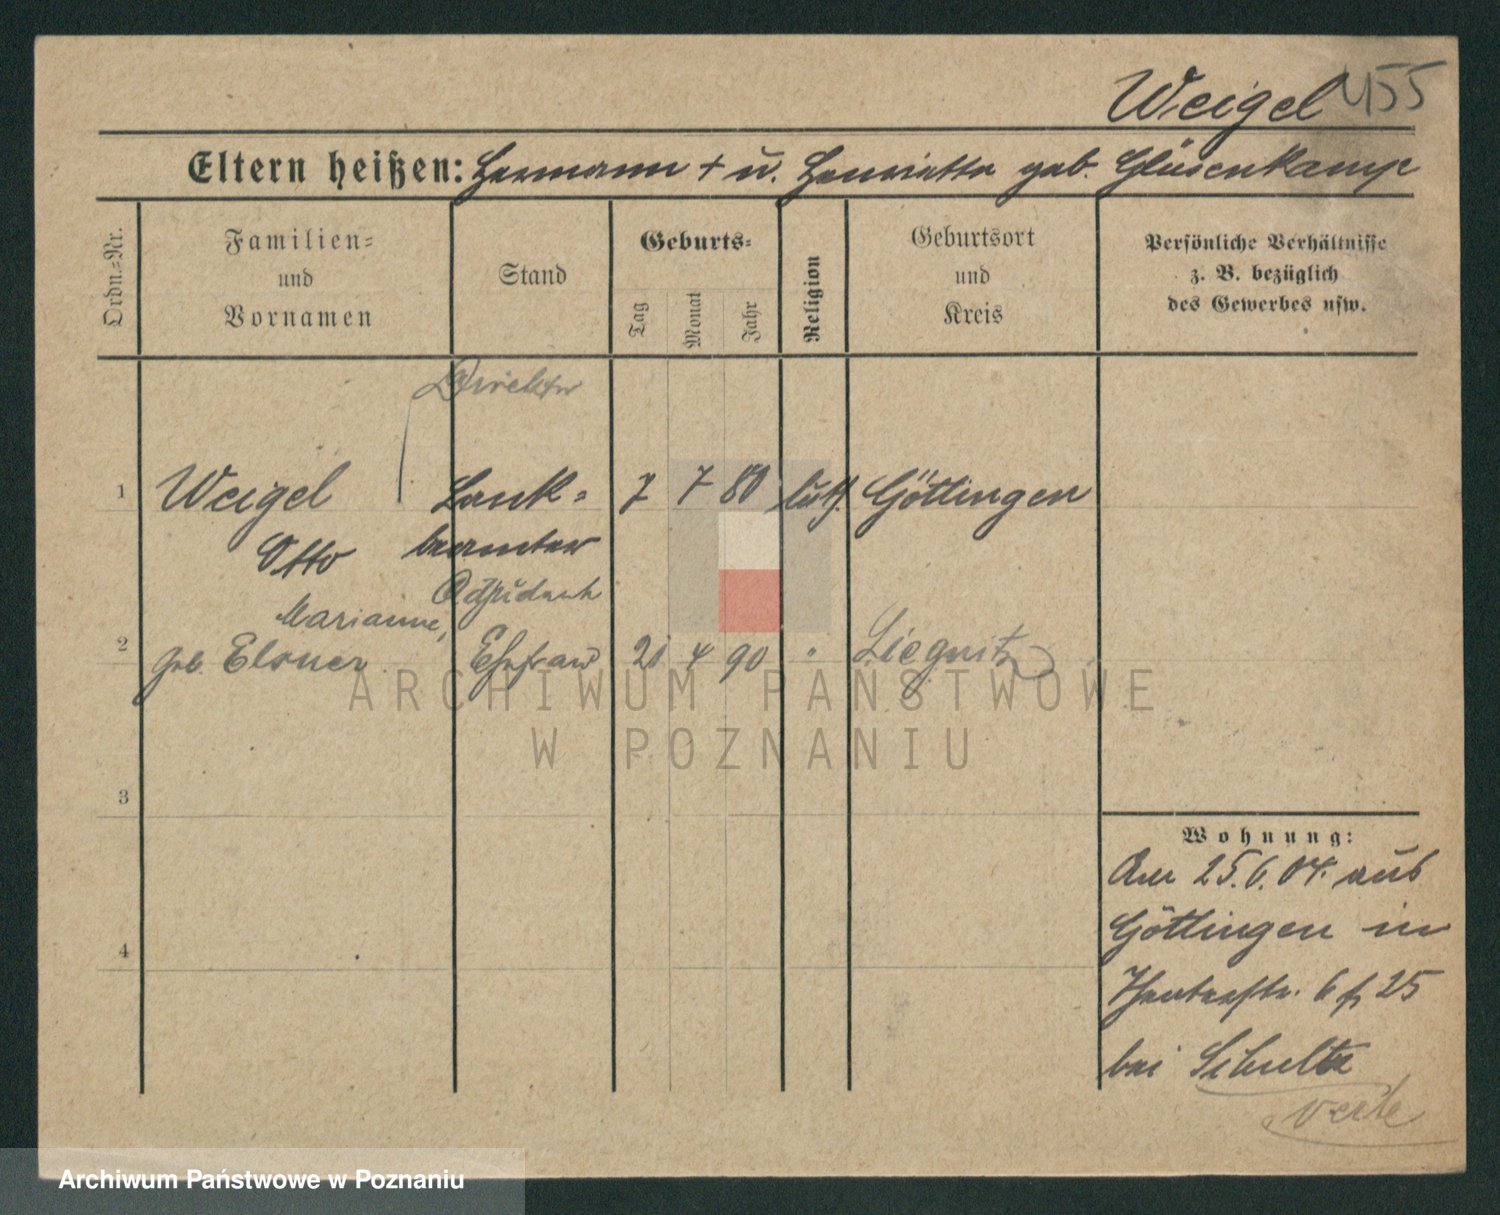 Weigel 455
Eltern heißen: Hermann + u. Henriette geb. Glüsenkamp
Ordn.-Nr.
Familien-
und
Vornamen
Stand
Geburts-
Tag
Monat
Jahr
Religion
Geburtsort
und
Kreis
Persönliche Verhältnisse
z. B. bezüglich
des Gewerbes usw.
Direktor
1 Weigel Bank- 7 7 80 luth. Göttingen
Otto beamter
Marianne,
2 geb. Elsner Ehefrau 21 4 90 " Liegnitz
3
4
Wohnung:
Am 25.6.04. aus
Göttingen in
Theaterstr. 6 f 25
bei Schultz
ARCHIWUM PAŃSTWOWE
W POZNANIU
Archiwum Państwowe w Poznaniu